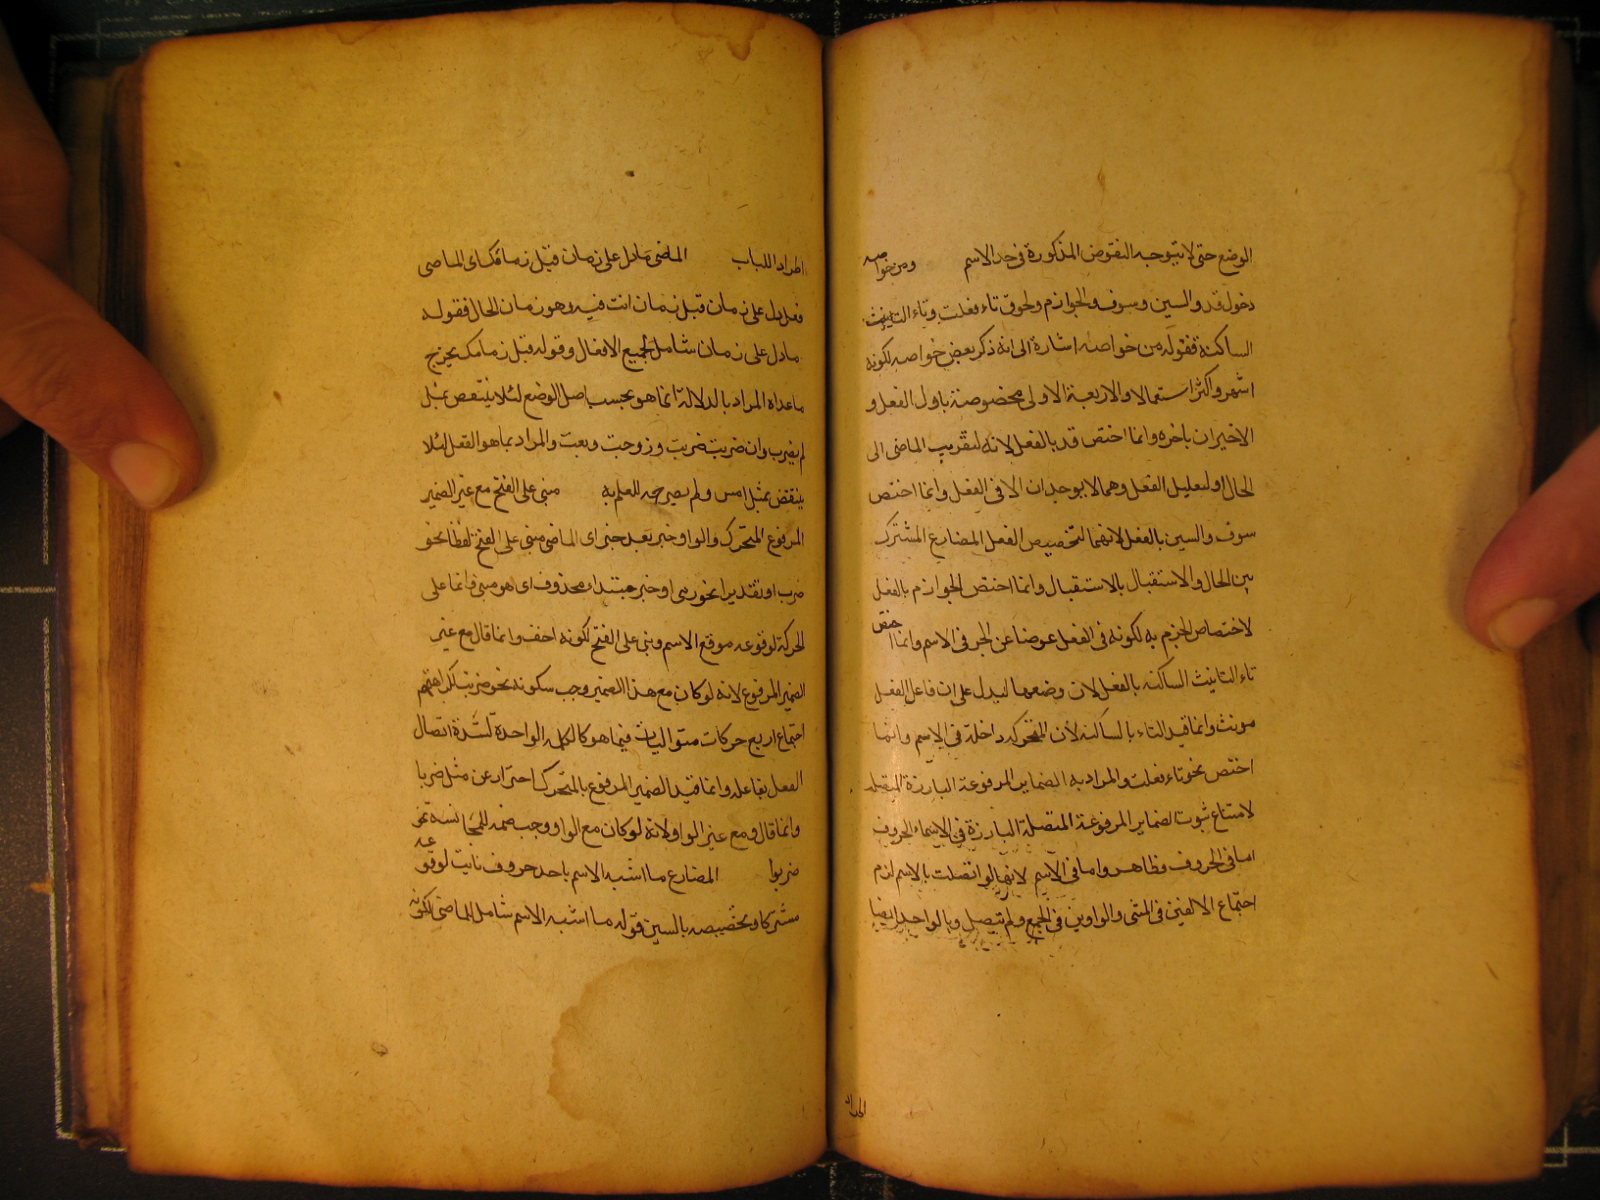 الوضع حتى لا يتوجه النقوض المذكورة فى حد الاسم ومن خواصه
دخول قد والسين وسوف والجوازم ولحوق تاء فعلت وتاء التانيث
الساكنة فقوله من خواصه اشارة الى انه ذكر بعض خواصه لكونه
اشهر واكثر استعمالا والاربعة الاولى مخصوصة باول الفعل و
الاخيران باخره وانما اختص قد بالفعل لانه لتقريب الماضى الى
الحال او لتعليل الفعل وهما لا يوجدان الا فى الفعل وانما اختص
سوف والسين بالفعل لانهما لتخصيص الفعل المضارع المشترك
بين الحال والاستقبال بالاستقبال وانما اختص الجوازم بالفعل
لاختصاص الجزم به لكونه فى الفعل عوضا عن الجر فى الاسم وانما اختص
تاء التانيث الساكنه بالفعل لان وضعها ليدل على ان فاعل الفعل
مونث وانما قيد التاء بالساكنه لأن المتحركه داخلة فى الاسم وانما
اختص نحو تاء فعلت والمراد به الضماير المرفوعة البارزة المتصله
لامتناع ثبوت الضماير المرفوعة المتصلة البارزة فى الاسماء والحروف
اما فى الحروف فظاهر واما فى الاسم لانها لو اتصلت بالاسم لزم
اجتماع الالفين فى المثنى والواوين فى الجمع ولم يتصل وبالواحد ايضا
اطراد
اطراد اللباب الماضى مادل على زمان قبل زمانك اى الماضى
فعل دل على زمان قبل زمان انت فيه وهو زمان الحال فقوله
مادل على زمان شامل لجميع الافعال وقوله قبل زمانك يخرج
ماعداه المراد بالدلالة انما هو بحسب اصل الوضع لئلا ينتقص بمثل
لم يضرب وان ضربت ضربت وزوجت وبعت والمراد بما هو الفعل لئلا
ينتقض بمثل امس ولم يصرح به للعلم به مبنى على الفتح مع غير الضمير
المرفوع المتحرك والواو خبر بعد خبر اى الماضى مبنى على الفتح لفظا نحو
ضرب او تقديرا نحو رمى او خبر مبتداء محذوف اى هو مبنى وانما على
الحركة لوقوعه موقع الاسم وبنى على الفتح لكونه اخف وانما قال مع غير
الضمير المرفوع لانه لو كان مع هذا الضمير وجب سكونه نحو ضربت لكراهتهم
اجتماع اربع حركات متواليات فيما هو كالكلمة الواحدة لشدة اتصال
الفعل بفاعله وانما قيد الضمير المرفوع بالمتحرك احترازا عن مثل ضربا
وانما قال ومع غير الواو لانه لو كان مع الواو وجب ضمه للمجانسة نحو
ضربوا المضارع ما اشبه الاسم باحد حروف نايت لوقوعه
مشتركا وتخصيصه بالسين قوله ما اشبه الاسم شامل للماضى لكونه